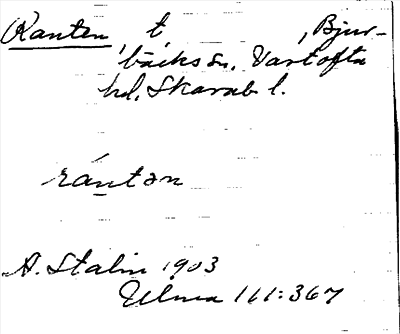 Ranten, t, Bjur-
bäcks sn. Vartofta
hd, Skarab. l.
rántən
A. Stalin 1903
Ulma 161:367